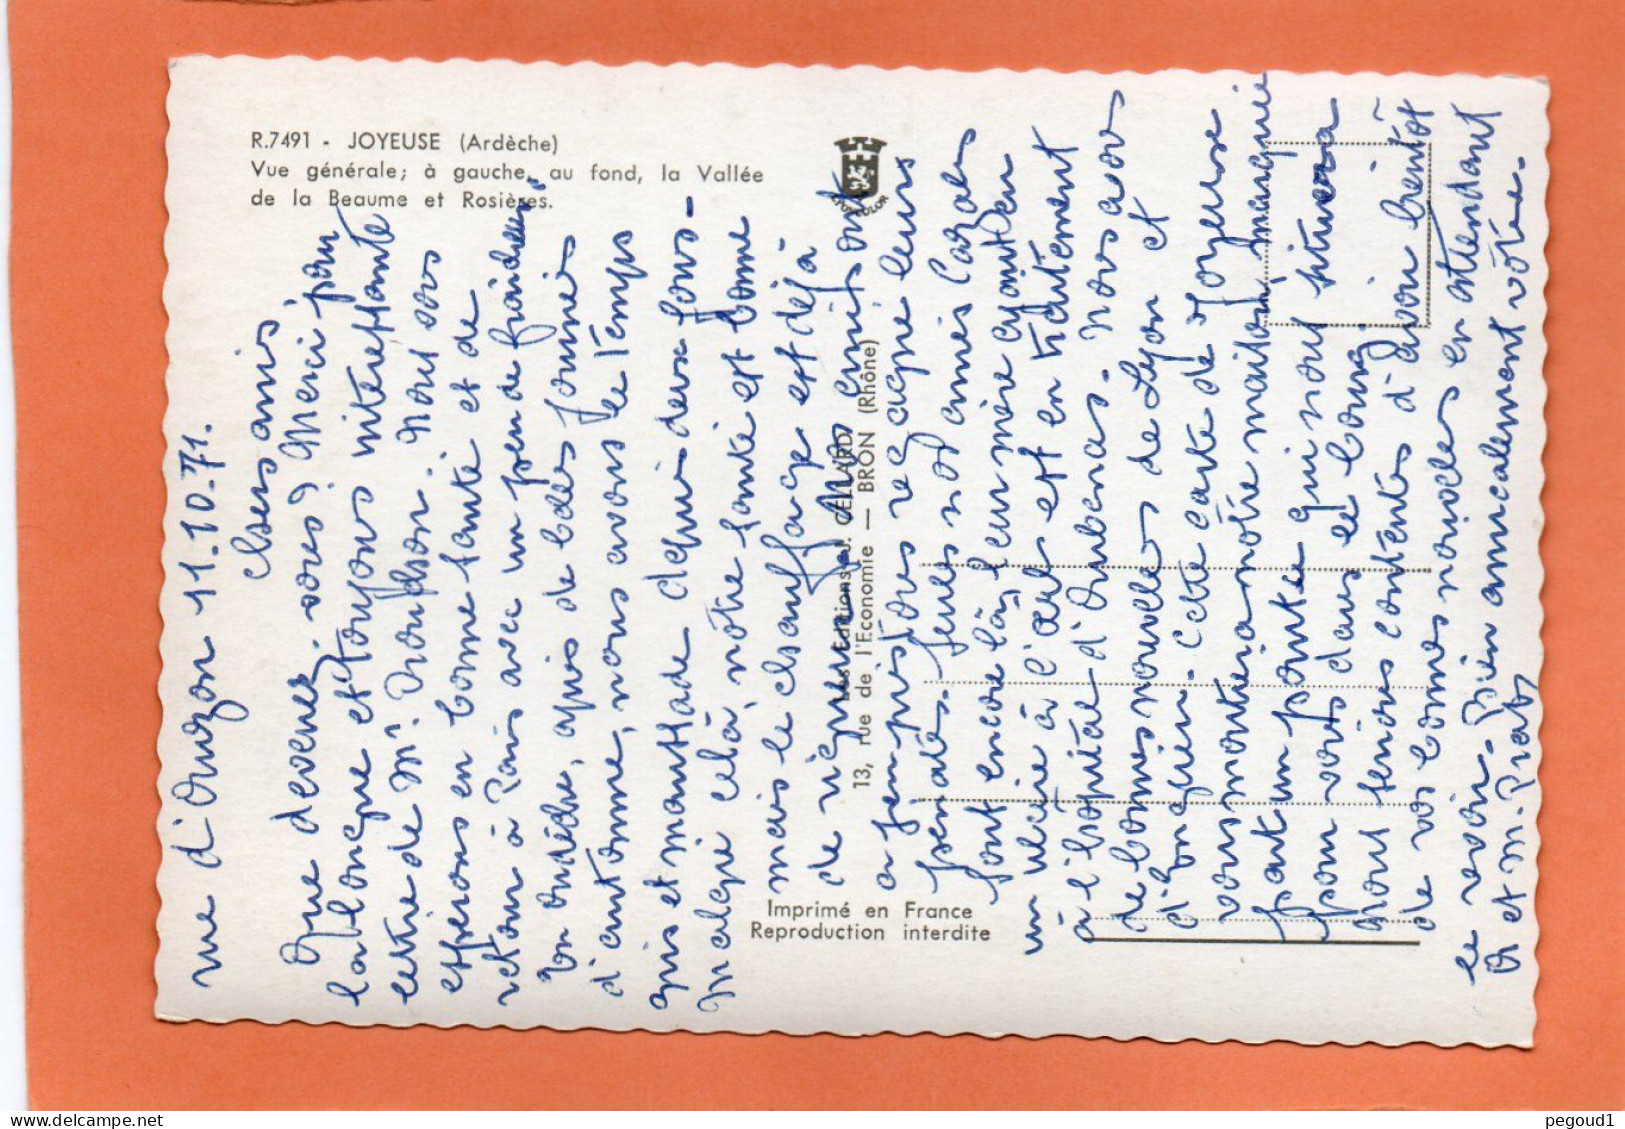 R.7491 - JOYEUSE (Ardèche)
Vue générale; à gauche, au fond, la Vallée
de la Beaume et Rosières.
LYONCOLOR
Les Editions J. CELLARD
13, rue de l'Economie — BRON (Rhône)
Imprimé en France
Reproduction interdite
rue d'Auzon 11.10.71.
Chers amis
Que devenez-vous? Merci pour
la longue et toujours intéressante
lettre de Mr. . Nous vous
espérons en bonne santé et de
retour à Paris avec un peu de fraicheur.
En Ardèche, après de belles journées
d'automne, nous avons le temps
gris et maussade depuis deux jours -
Malgré celà, notre santé est bonne
mais le chauffage est déjà
de rigueur. Nos amis ont
a peu près tous regagné leurs
pénates. Seuls nos amies Cazals
sont encore là, leur mère ayant eu
un ulcère à l'œil est en traitement
à l'hopital d'Aubenas. Nous avons
de bonnes nouvelles de Lyon et
d'. Cette carte de Joyeuse
vous montrera notre maison, marquée
par un pointe qui nous situera
pour vous dans le bourg.
Nous serions contents d'avoir bientôt
de vos bonnes nouvelles en attendant
le revoir. Bien amicalement vôtre.
et M.
pegoud1